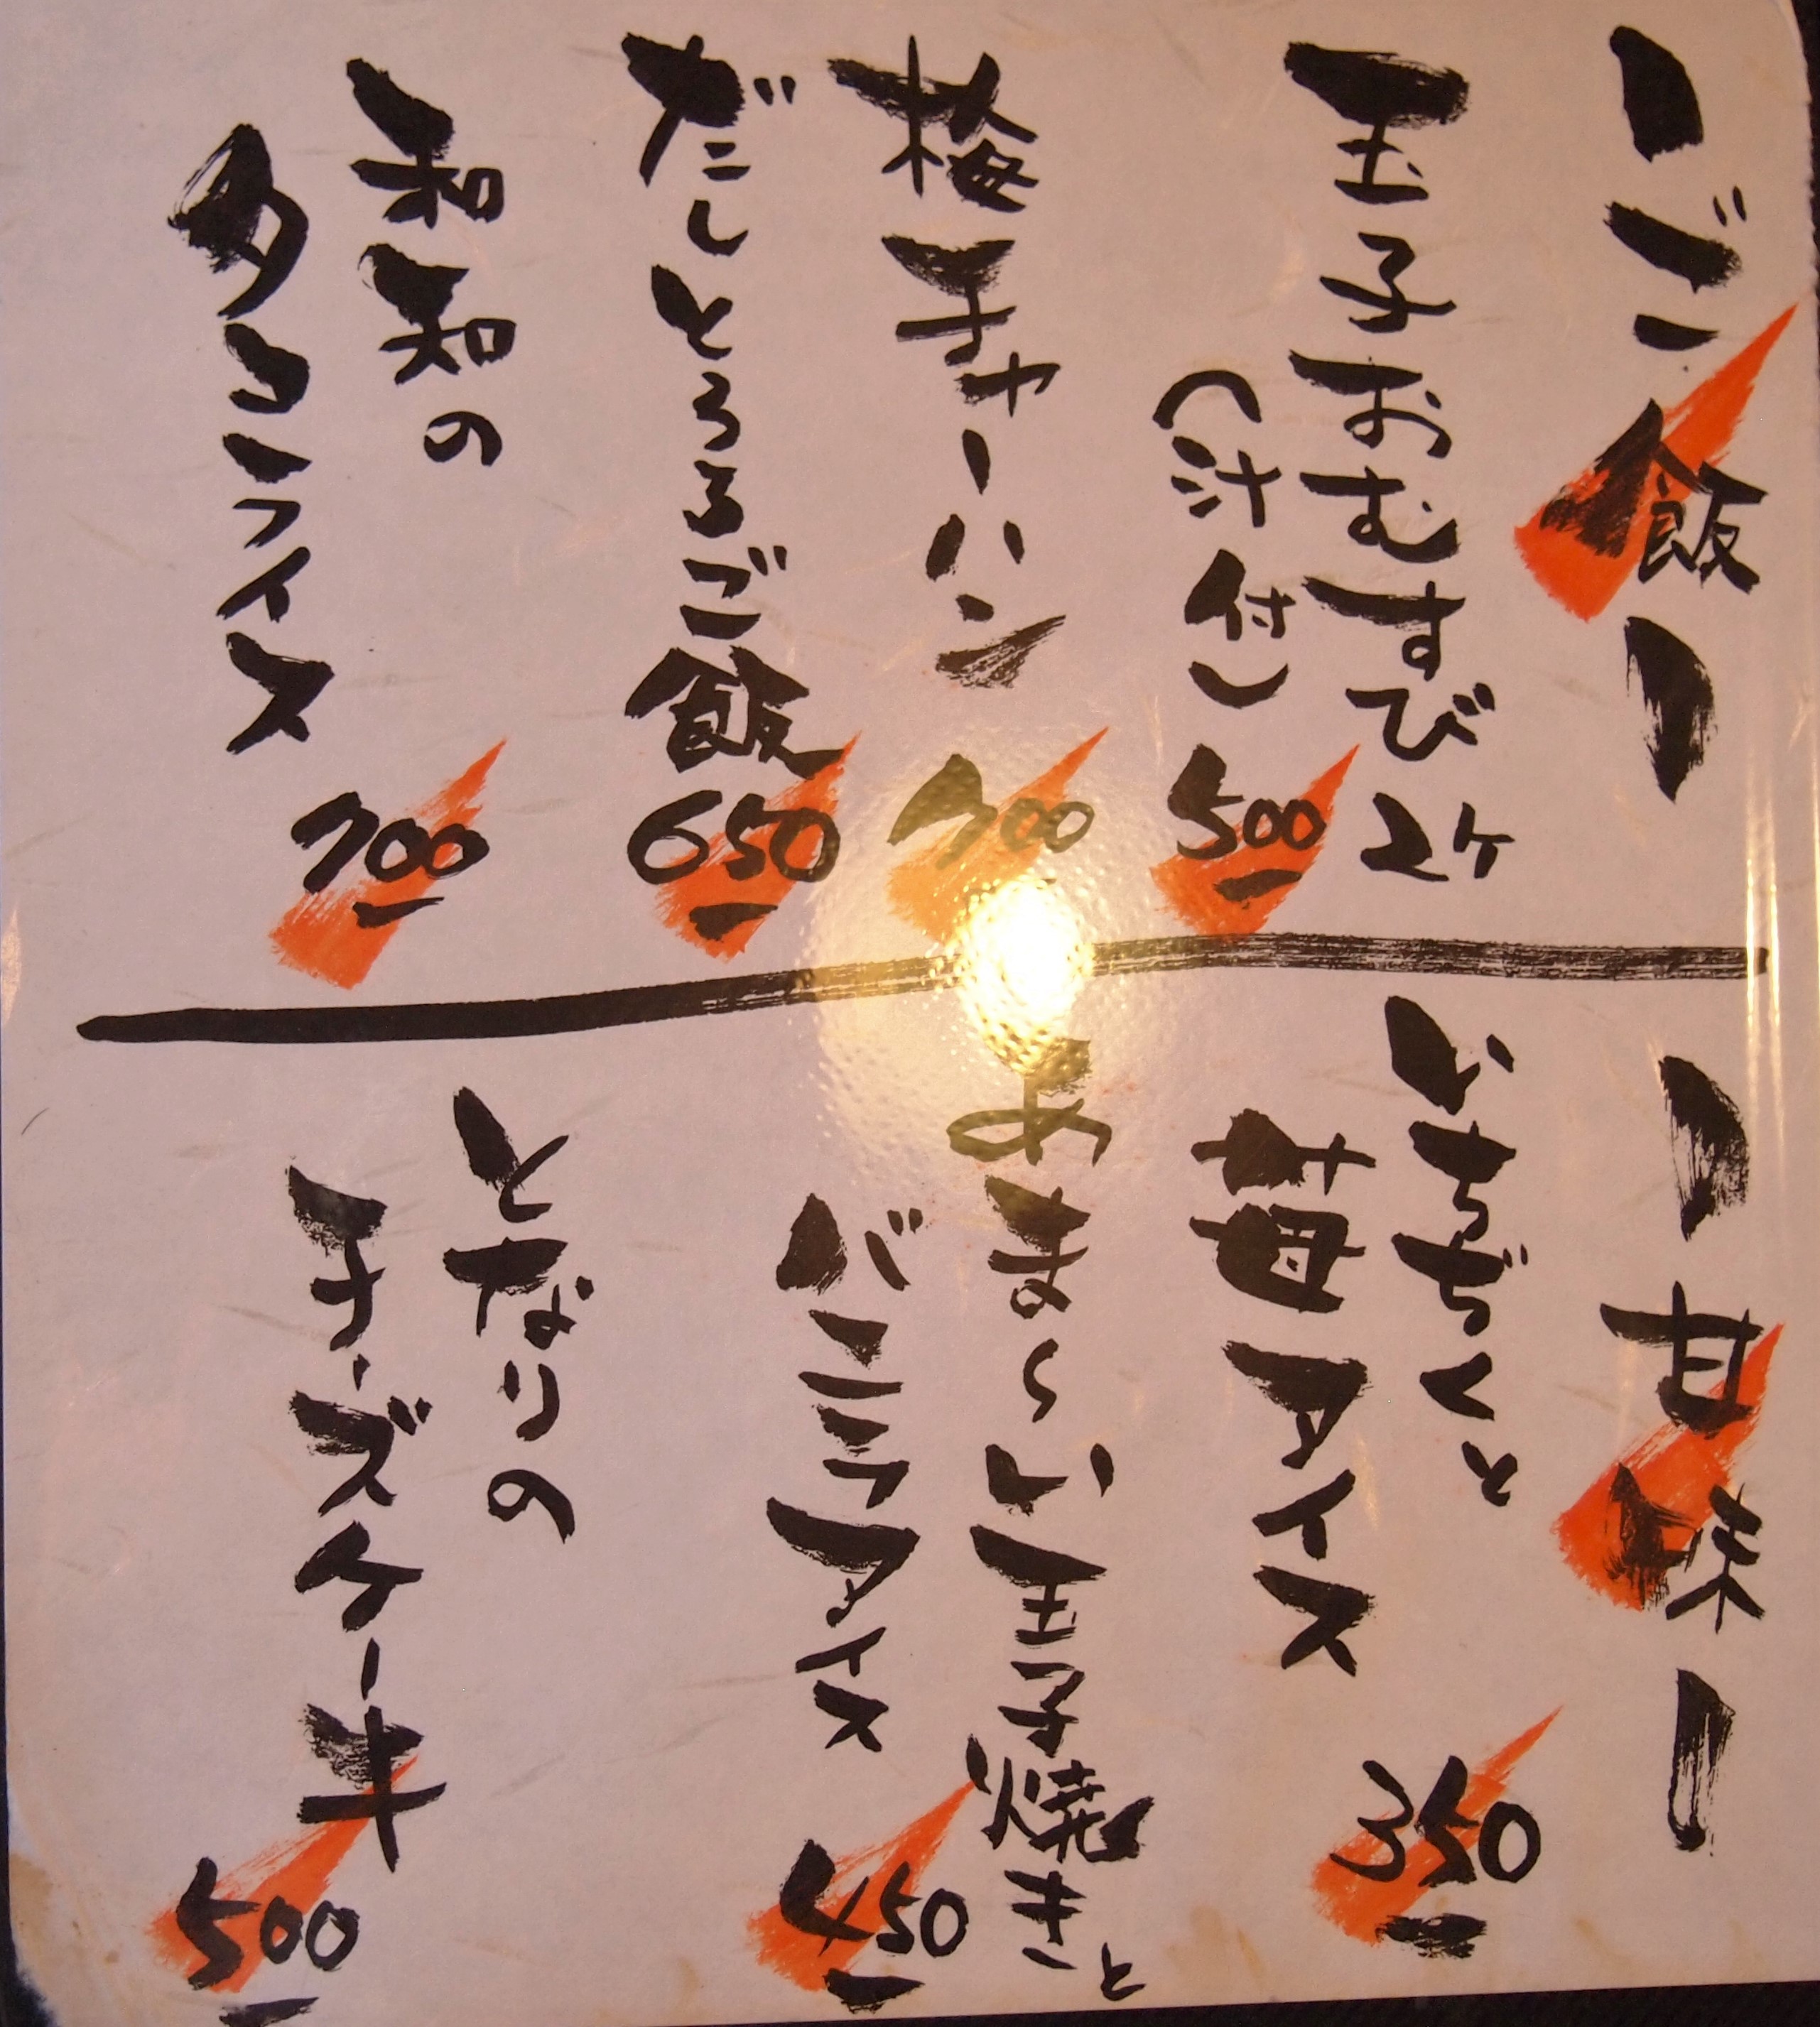 ーご飯ー
玉子おむすび2ケ
(汁付) 500
梅チャーハン 700
だしとろろご飯 650
和知の
タコライス 700
ー甘味ー
いちぢくと
苺アイス 350
あま〜い玉子焼きと
バニラアイス 450
となりの
チーズケーキ 500